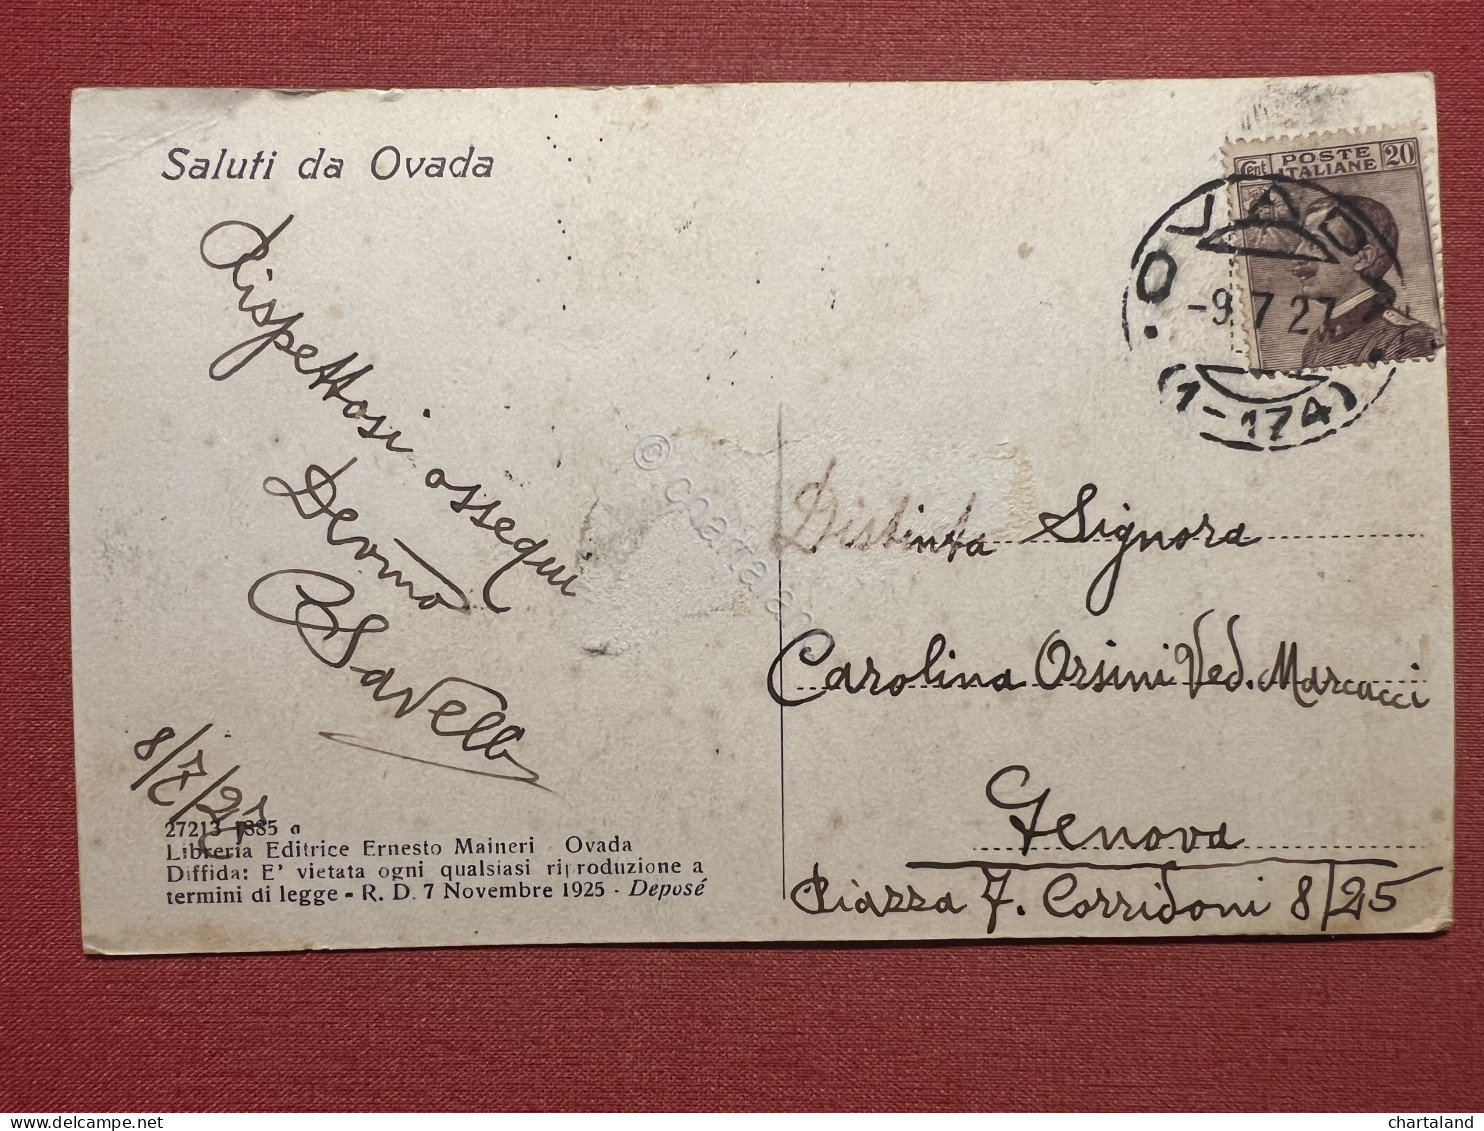 Saluti da Ovada
Rispettosi ossequi
Devmo
Savelli
8/7/27
27213 1885 a
Libreria Editrice Ernesto Maineri - Ovada
Diffida: E' vietata ogni qualsiasi riproduzione a
termini di legge - R. D. 7 Novembre 1925 - Deposé
Cent POSTE ITALIANE 20
OVADA
-9.7.27
(1-174)
Distinta Signora
Carolina Orsini Ved. Marcacci
Genova
Piazza F. Corridoni 8/25
© chartaland
chartaland
www.delcampe.net